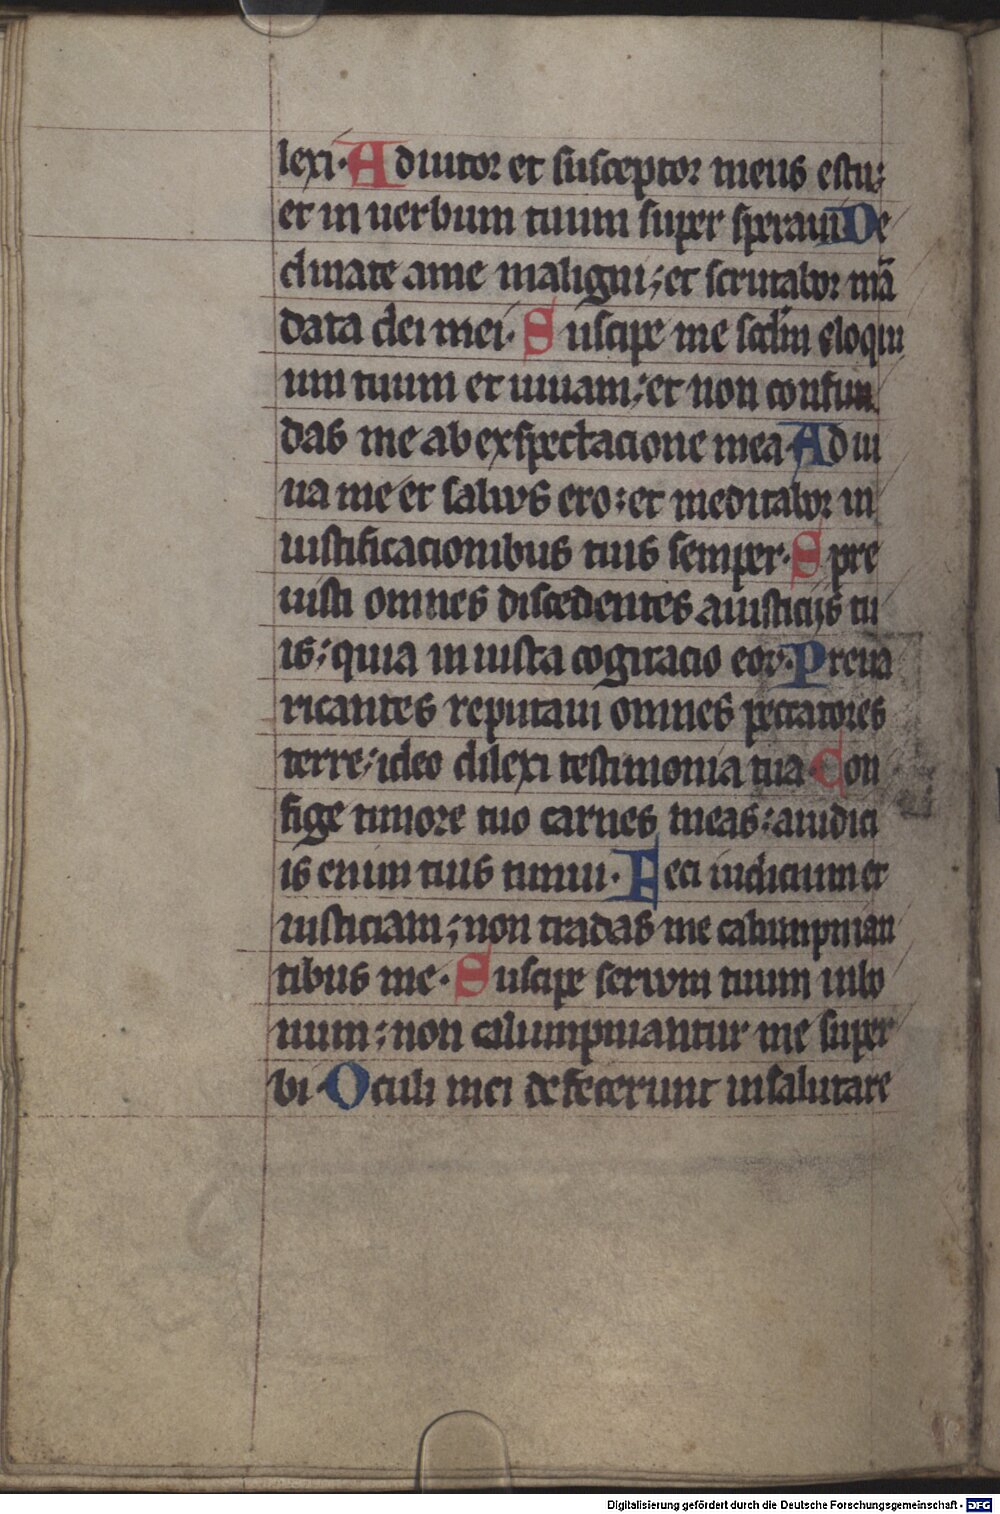 lexi. Adiutor et susceptor meus es tu;
et in uerbum tuum super speraui De
clinate a me maligni; et scrutabor mā
data dei mei. Suscipe me scdm eloqui
um tuum et uiuam; et non confun
das me ab exspectacione mea. Adiu
ua me et saluus ero; et meditabor in
iustificacionibus tuis semper. Spre
uisti omnes discedentes a iusticijs tu
is; quia iniusta cogitacio eoꝝ. Preua
ricantes reputaui omnes peccatores
terre; ideo dilexi testimonia tua. Con
fige timore tuo carnes meas; a iudici
is enim tuis timui. Feci iudicium et
iusticiam; non tradas me calumpnian
tibus me. Suscipe seruum tuum in bo
num; non calumpniantur me super
bi. Oculi mei defecerunt in salutare
Digitalisierung gefördert durch die Deutsche Forschungsgemeinschaft - DFG